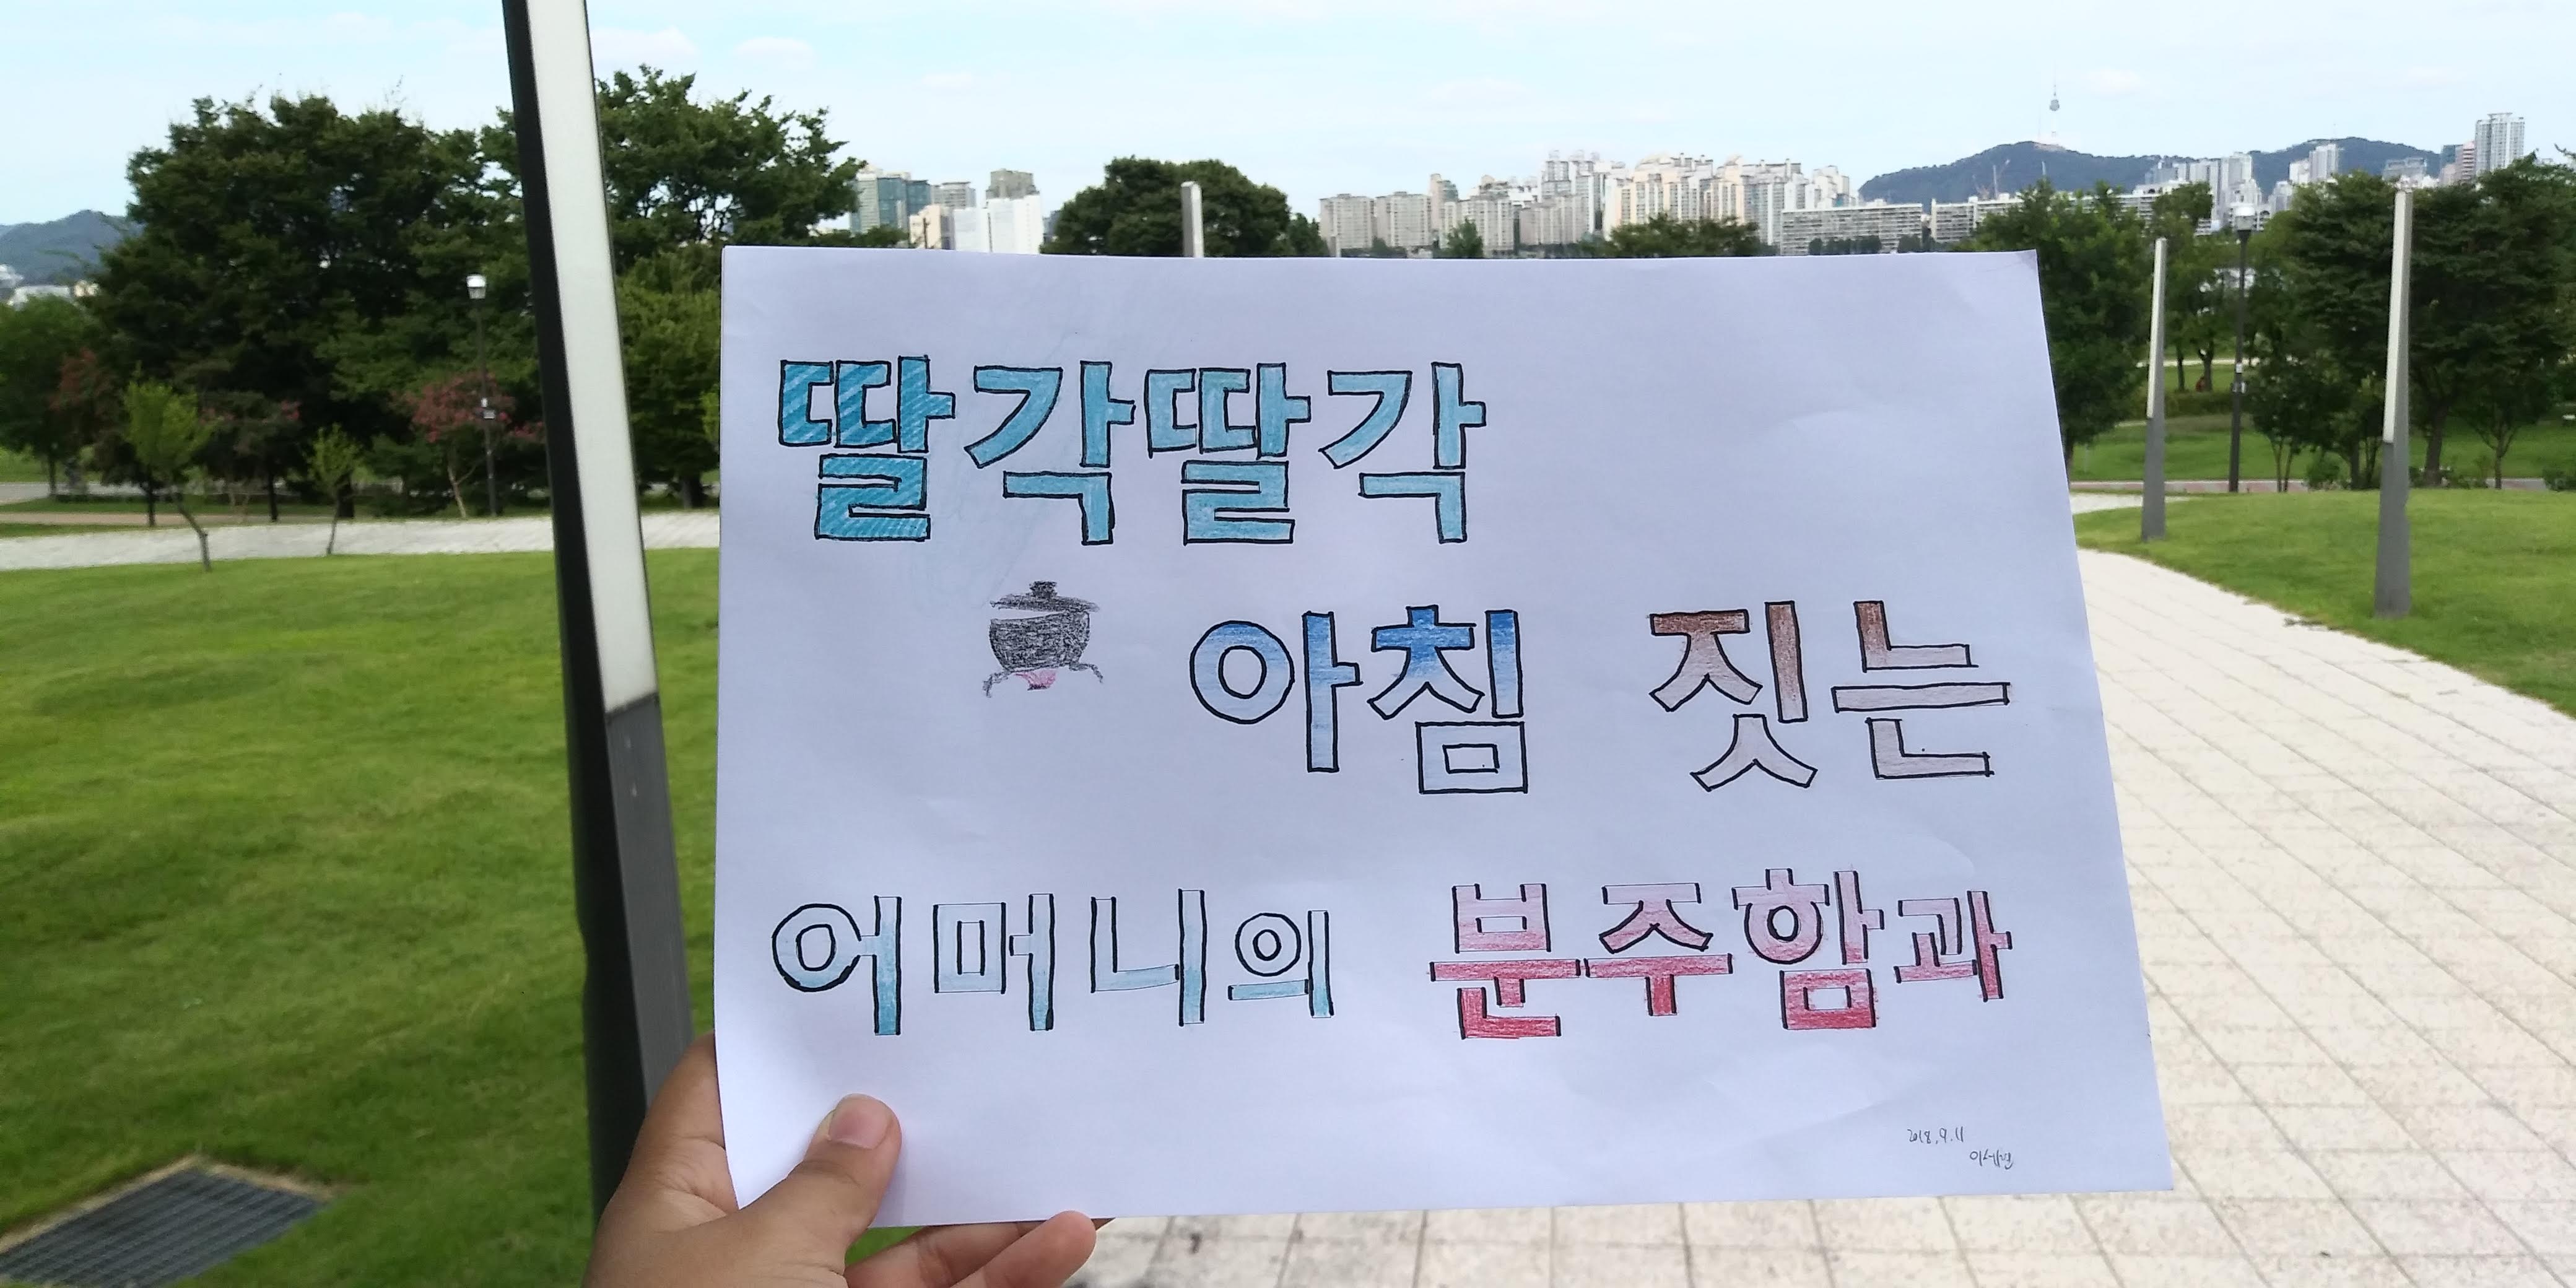 딸각딸각
아침 짓는
어머니의 분주함과
2018.9.11